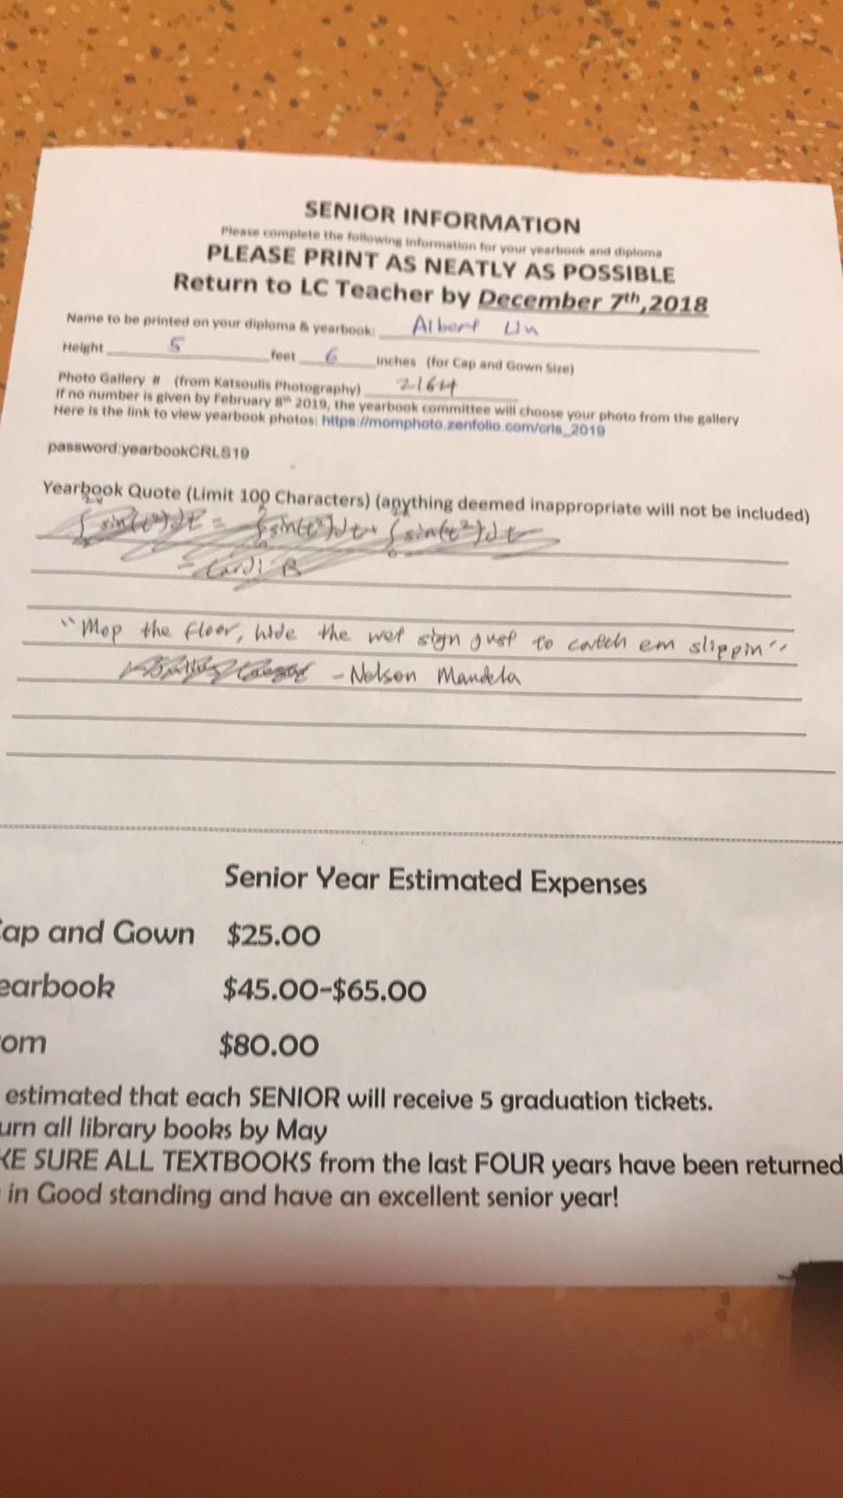 SENIOR INFORMATION
Please complete the following information for your yearbook and diploma
PLEASE PRINT AS NEATLY AS POSSIBLE
Return to LC Teacher by December 7th, 2018
Name to be printed on your diploma & yearbook: Albert
Height 5 feet 6 inches (for Cap and Gown Size)
Photo Gallery # (from Katsoulis Photography) 2164
If no number is given by February 8th 2019, the yearbook committee will choose your photo from the gallery
Here is the link to view yearbook photos: https://momphoto.zenfolio.com/crls_2019
password:yearbookCRLS19
Yearbook Quote (Limit 100 Characters) (anything deemed inappropriate will not be included)
∫ sin(t²)dt = ∫ sin(t²)dt + ∫ sin(t²)dt
- Cardi B
"Mop the floor, hide the wet sign just to catch em slippin"
- Nelson Mandela
Senior Year Estimated Expenses
ap and Gown $25.00
earbook $45.00-$65.00
om $80.00
estimated that each SENIOR will receive 5 graduation tickets.
urn all library books by May
KE SURE ALL TEXTBOOKS from the last FOUR years have been returned
in Good standing and have an excellent senior year!